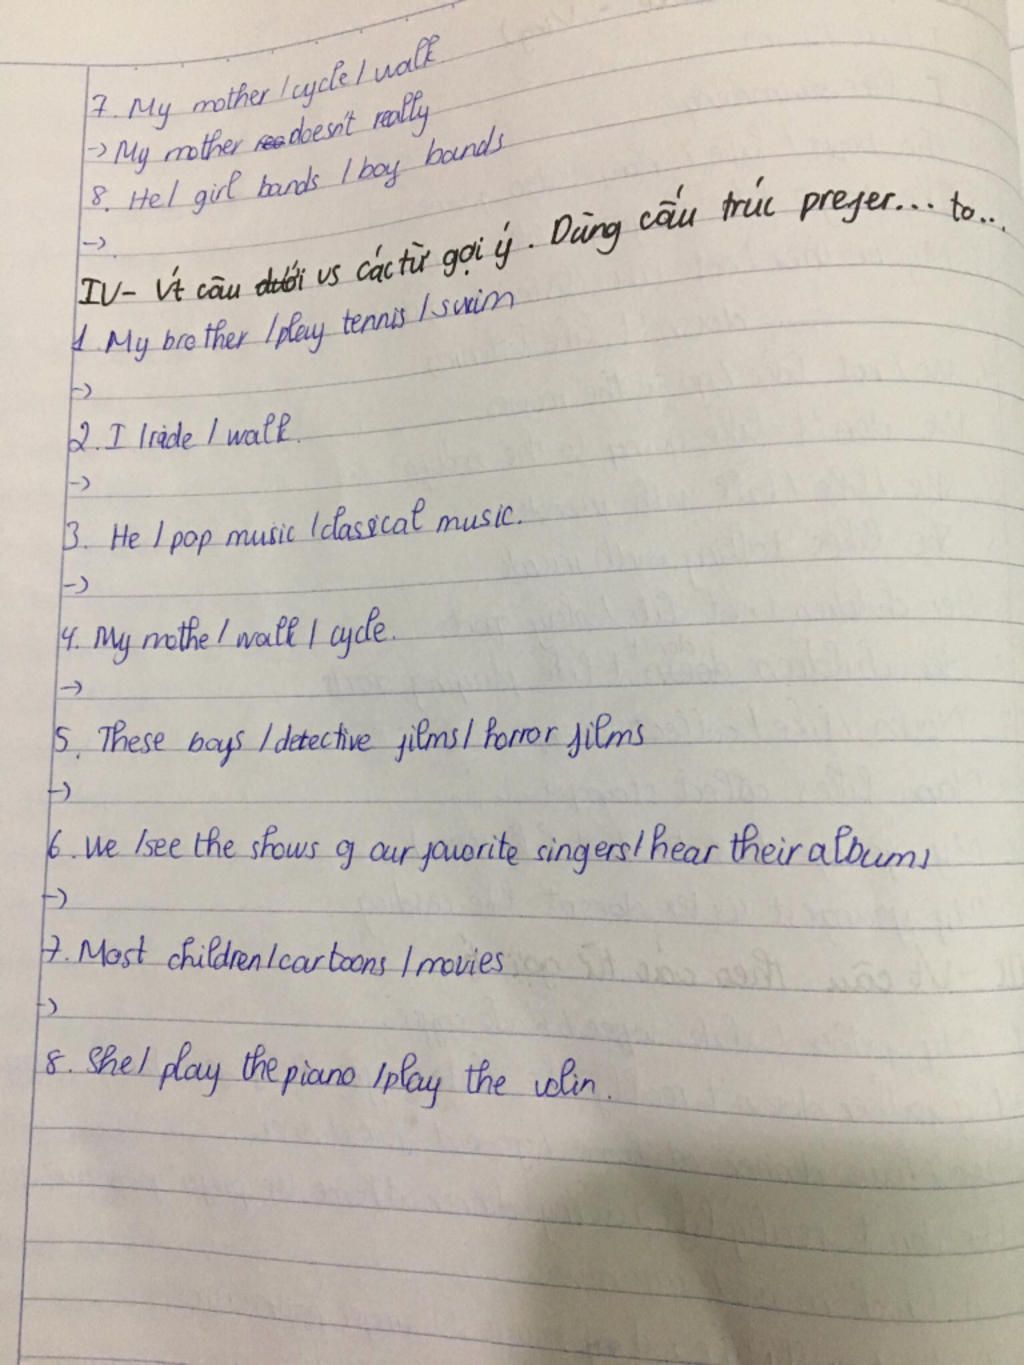 7. My mother / cycle / walk
-> My mother doesn't really
8. He / girl bands / boy bands
->
IV- Vt câu dưới vs các từ gợi ý. Dùng cấu trúc prefer... to...
1. My brother / play tennis / swim
->
2. I / ride / walk.
->
3. He / pop music / classical music.
->
4. My mothe / walk / cycle.
->
5. These boys / detective films / horror films
->
6. We / see the shows of our favorite singers / hear their albums
->
7. Most children / cartoons / movies
->
8. She / play the piano / play the volin.